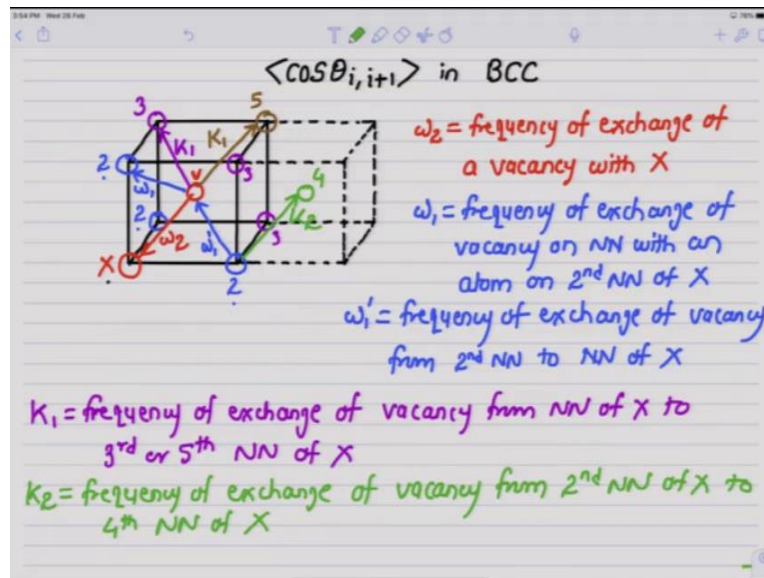 3:54 PM Wed 28 Feb
76%
<cosθi,i+1> in BCC
3
5
K1
K1
2
ω1
V
3
4
2
ω2
ω1'
3
K2
X
2
ω2 = frequency of exchange of
a vacancy with X
ω1 = frequency of exchange of
vacancy on NN with an
atom on 2nd NN of X
ω1' = frequency of exchange of vacancy
from 2nd NN to NN of X
K1 = frequency of exchange of vacancy from NN of X to
3rd or 5th NN of X
K2 = frequency of exchange of vacancy from 2nd NN of X to
4th NN of X